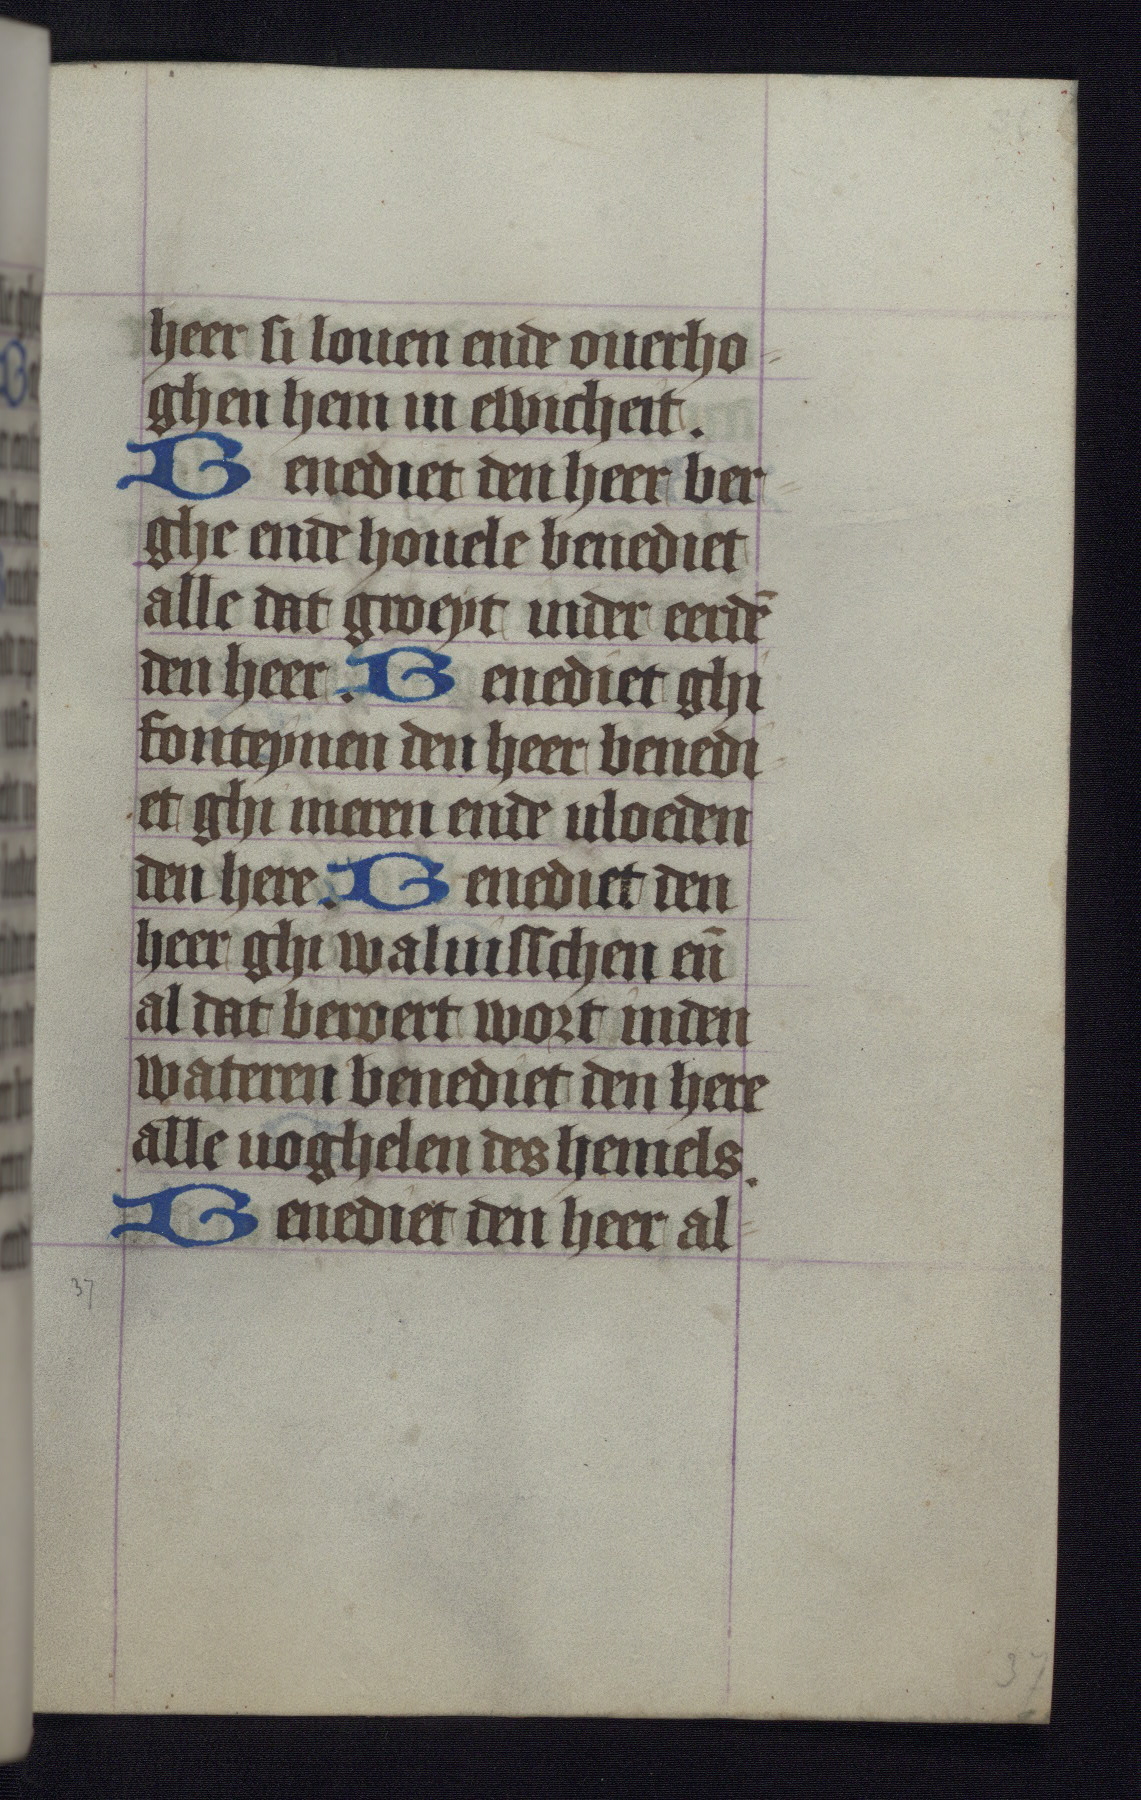 heer si louen ende ouerho-
ghen hem in ewicheit.
Benediet den heer ber-
ghe ende houele benediet
alle dat groeyt inder eerdē
den heer. Benediet ghi
fonteynen den heer benedi-
et ghi meren ende uloeden
den here. Benediet den
heer ghi waluisschen en̄
al dat beroert wort inden
wateren benediet den here
alle uoghelen des hemels.
Benediet den heer al-
37
37